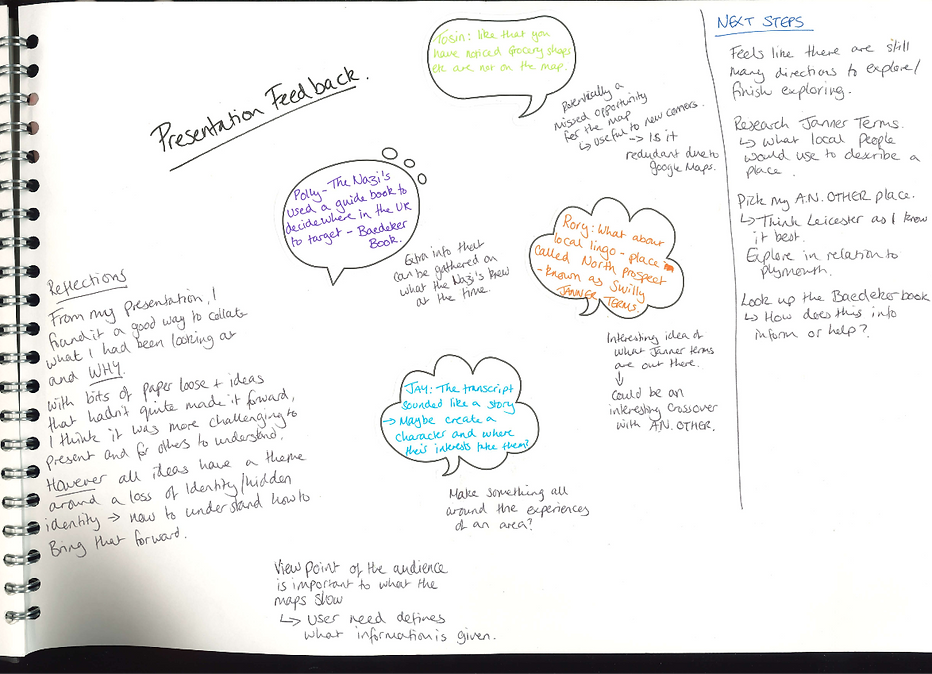 Presentation Feedback.
Tosin: like that you
have noticed Grocery shops
etc are not on the map.
Potentially a
missed opportunity
for the map
↳ useful to new comers.
→ Is it
redudant due to
Google Maps.
Polly - The Nazi's
used a guide book to
decide where in the UK
to target - Baedeker
Book.
Extra info that
can be gathered on
what the Nazi's knew
at the time.
Rory: What about
local lingo - place
called North prospect
- known as Swilly
JANNER TERMS.
Interesting idea of
what Janner terms
are out there.
↓
Could be an
interesting crossover
with A.N. OTHER.
JAY: The transcript
sounded like a story
→ Maybe create a
character and where
their interests take them?
Make something all
around the experiences
of an area?
Reflections
From my presentation, I
found it a good way to collate
what I had been looking at
and WHY.
With bits of paper loose + ideas
that hadn't quite made it forward,
I think it was more challenging to
present and for others to understand.
However all ideas have a theme
around a loss of Identity/hidden
identity → How to understand how to
Bring that forward.
View point of the audience
is important to what the
maps show
↳ User need defines
what information is given.
NEXT STEPS
Feels like there are still
many directions to explore/
finish exploring.
Research Janner Terms.
↳ what local people
would use to describe a
place.
Pick my A.N. OTHER place.
↳ Think Leicester as I know
it best.
Explore in relation to
plymouth.
Look up the Baedeker book
↳ How does this info
inform or help?